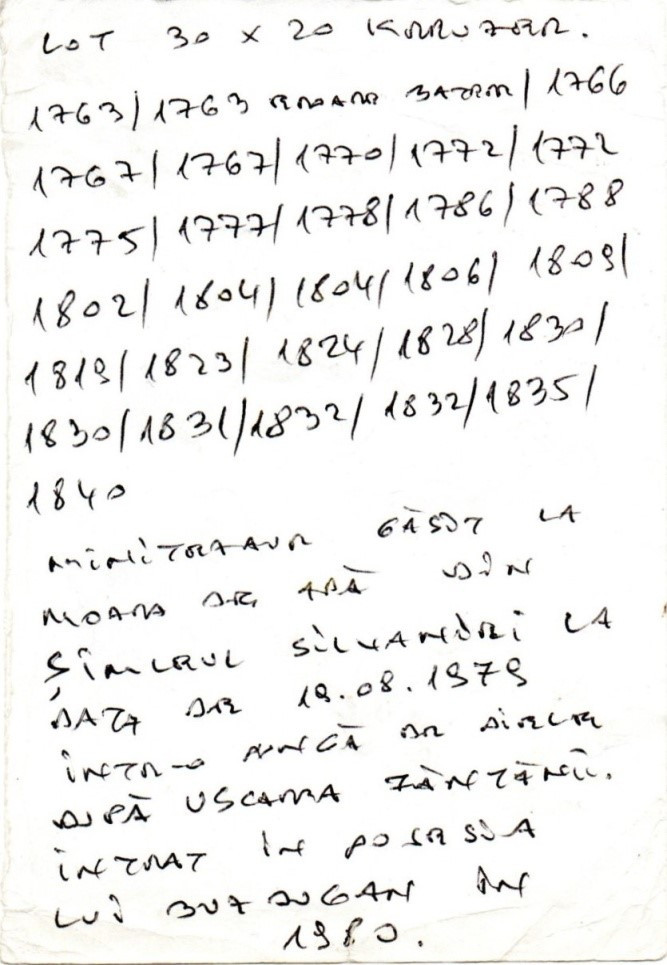 LOT 30 x 20 KREUZER.
1763/1763 EROARE BATERE/1766
1767/1767/1770/1772/1772
1775/1777/1778/1786/1788
1802/1804/1804/1806/1809/
1819/1823/1824/1828/1830/
1830/1831/1832/1832/1835/
1840
MINITEZAUR GĂSIT LA
MOARA DE APĂ DIN
ȘIMLEUL SILVANIEI LA
DATA DE 19.08.1979
ÎNTR-O PUNGĂ DE PIELE
DUPĂ USCAREA FÂNTÂNII.
INTRAT ÎN POSESIA
LUI BUZDUGAN ÎN
1980.